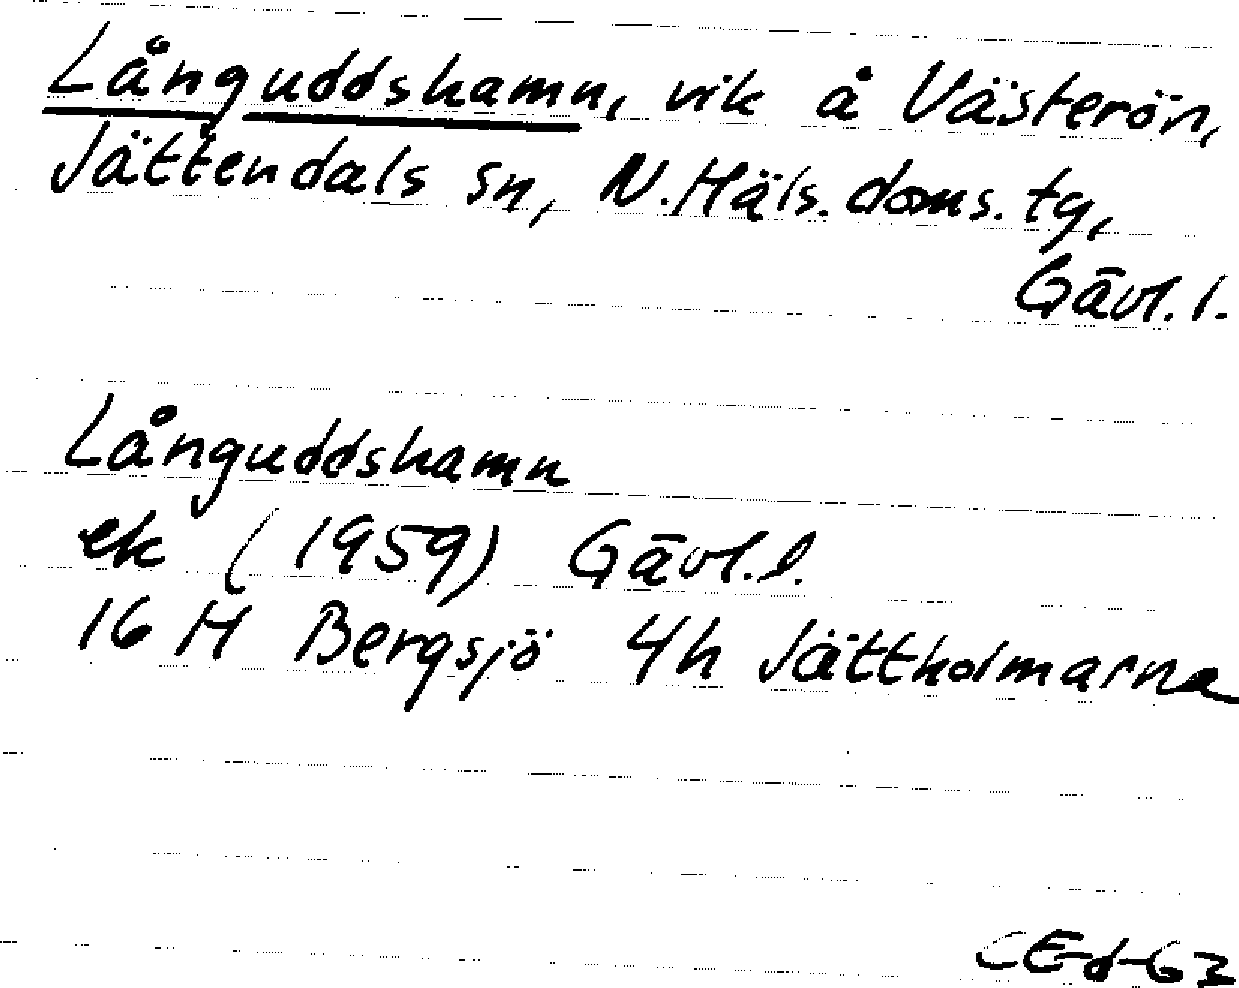 Långuddshamn, vik å Västerön,
Jättendals sn, N.Häls.doms.tg,
Gävl.l.
Långuddshamn
ek (1959) Gävl.l.
16 H Bergsjö 4h Jättholmarna
CEd-63